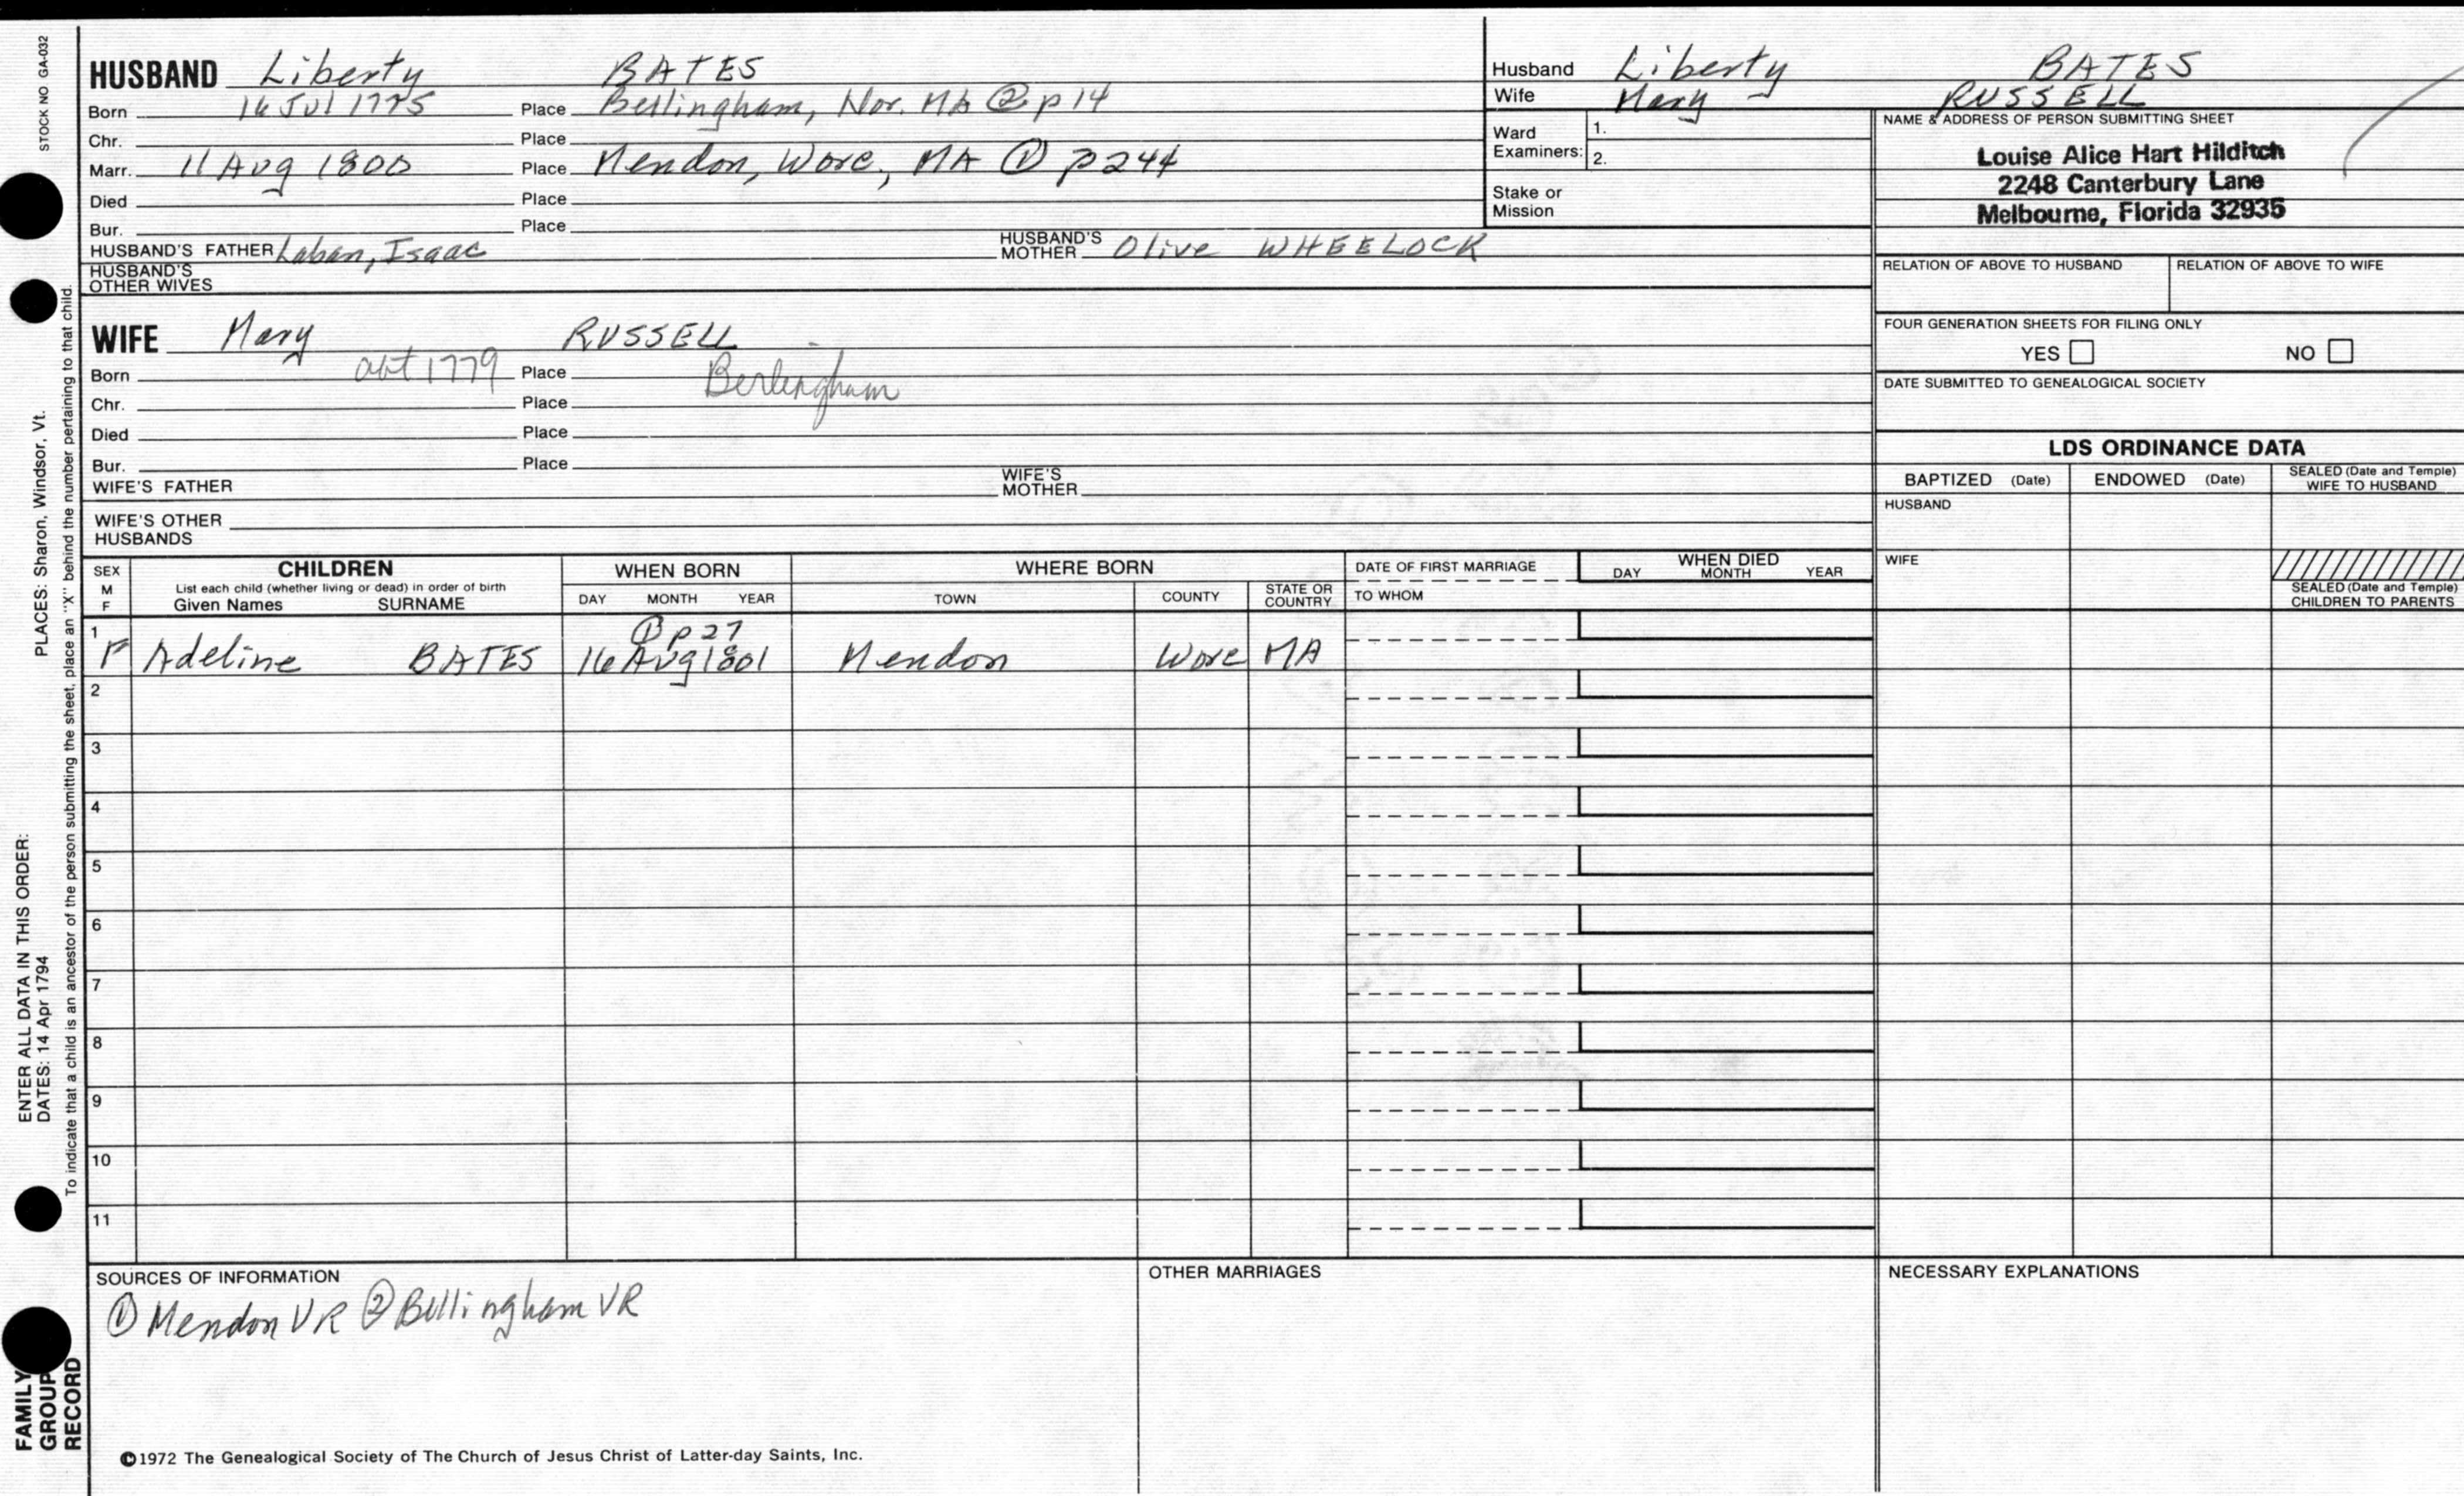 STOCK NO GA-032
HUSBAND Liberty BATES
Born 16 Jul 1775 Place Bellingham, Nor. MA ② p 14
Chr. Place
Marr. 11 Aug 1800 Place Mendon, Worc., MA ① p 244
Died Place
Bur. Place
HUSBAND'S FATHER Laban, Isaac HUSBAND'S MOTHER Olive WHEELOCK
HUSBAND'S OTHER WIVES
Husband Liberty BATES
Wife Mary RUSSELL
Ward Examiners: 1.
2.
Stake or Mission
NAME & ADDRESS OF PERSON SUBMITTING SHEET
Louise Alice Hart Hilditch
2248 Canterbury Lane
Melbourne, Florida 32935
RELATION OF ABOVE TO HUSBAND RELATION OF ABOVE TO WIFE
FOUR GENERATION SHEETS FOR FILING ONLY
YES NO
DATE SUBMITTED TO GENEALOGICAL SOCIETY
WIFE Mary RUSSELL
Born abt 1779 Place Berlingham
Chr. Place
Died Place
Bur. Place
WIFE'S FATHER WIFE'S MOTHER
WIFE'S OTHER HUSBANDS
LDS ORDINANCE DATA
BAPTIZED (Date) ENDOWED (Date) SEALED (Date and Temple) WIFE TO HUSBAND
HUSBAND
WIFE
SEALED (Date and Temple) CHILDREN TO PARENTS
SEX M F
CHILDREN
List each child (whether living or dead) in order of birth
Given Names SURNAME
WHEN BORN
DAY MONTH YEAR
WHERE BORN
TOWN COUNTY STATE OR COUNTRY
DATE OF FIRST MARRIAGE
TO WHOM
WHEN DIED
DAY MONTH YEAR
① p 27
1 F Adeline BATES 16 Aug 1801 Mendon Worc MA
2
3
4
5
6
7
8
9
10
11
SOURCES OF INFORMATION
① Mendon VR ② Bellingham VR
OTHER MARRIAGES
NECESSARY EXPLANATIONS
©1972 The Genealogical Society of The Church of Jesus Christ of Latter-day Saints, Inc.
ENTER ALL DATA IN THIS ORDER:
DATES: 14 Apr 1794
PLACES: Sharon, Windsor, Vt.
To indicate that a child is an ancestor of the person submitting the sheet, place an "X" behind the number pertaining to that child.
FAMILY
GROUP
RECORD